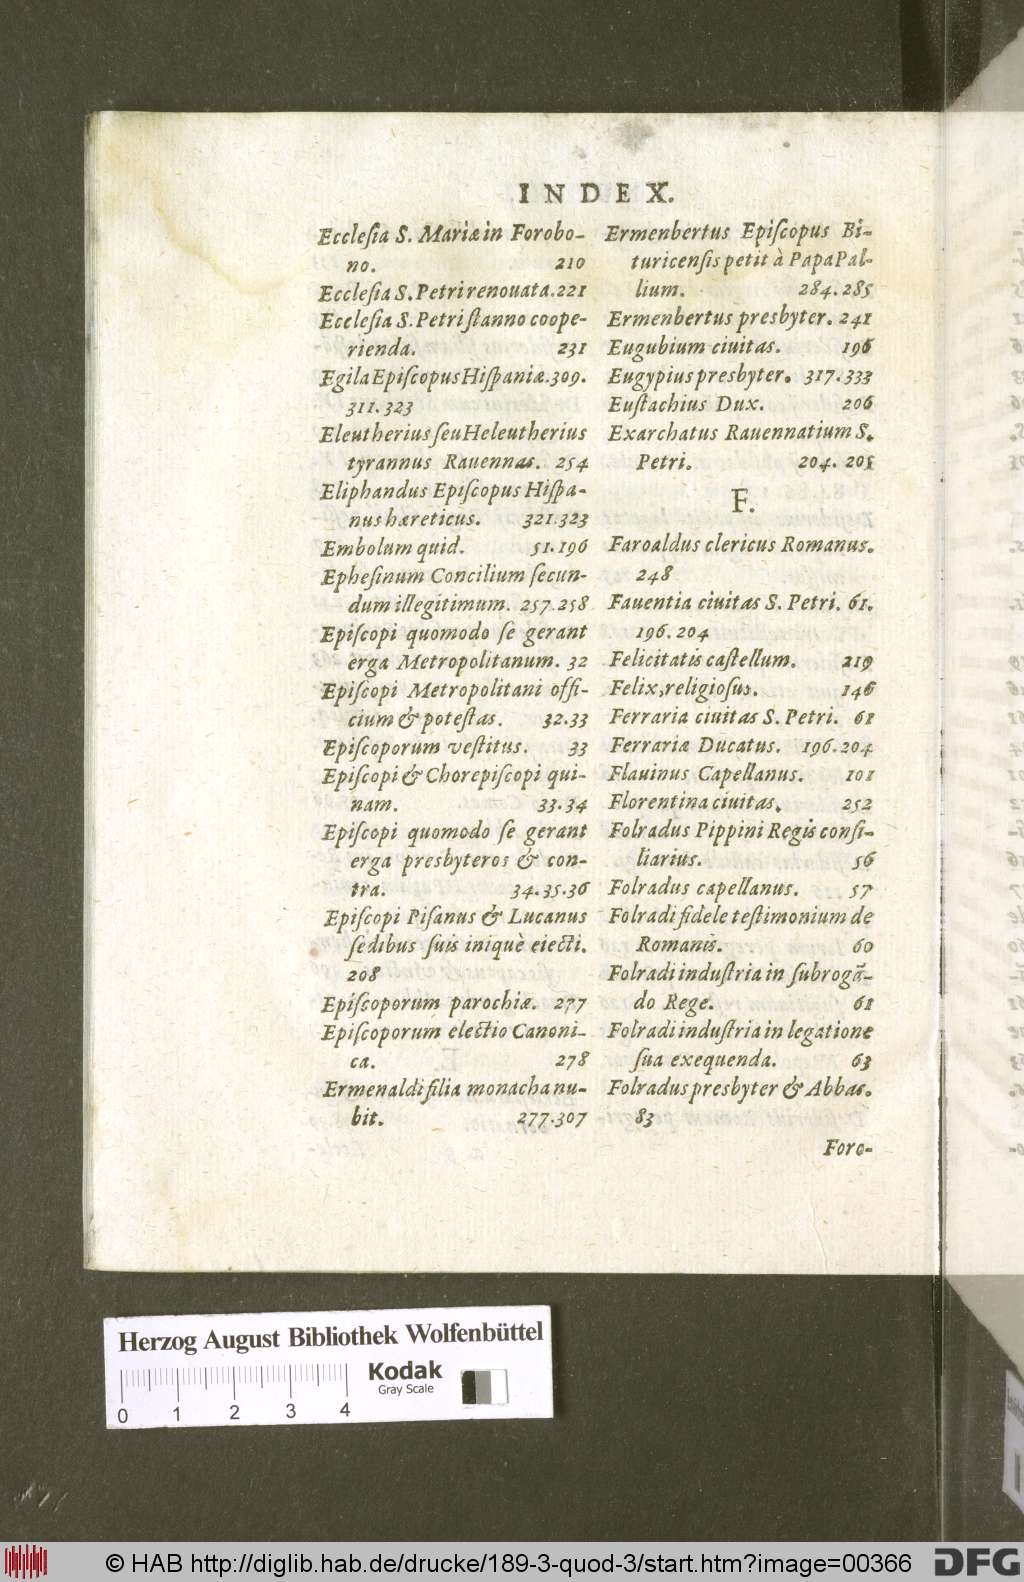 INDEX.
Eccleſia S. Mariæ in Forobo-
no. 210
Eccleſia S. Petri renouata. 221
Eccleſia S. Petri ſtanno coope-
rienda. 231
Egila Epiſcopus Hiſpaniæ. 309.
311. 323
Eleutherius ſeu Heleutherius
tyrannus Rauennas. 254
Eliphandus Epiſcopus Hiſpa-
nus hæreticus. 321. 323
Embolum quid. 51. 196
Epheſinum Concilium ſecun-
dum illegitimum. 257. 258
Epiſcopi quomodo ſe gerant
erga Metropolitanum. 32
Epiſcopi Metropolitani offi-
cium & poteſtas. 32. 33
Epiſcoporum veſtitus. 33
Epiſcopi & Chorepiſcopi qui-
nam. 33. 34
Epiſcopi quomodo ſe gerant
erga presbyteros & con-
tra. 34. 35. 36
Epiſcopi Piſanus & Lucanus
ſedibus ſuis iniquè eiecti.
208
Epiſcoporum parochiæ. 277
Epiſcoporum electio Canoni-
ca. 278
Ermenaldi filia monacha nu-
bit. 277. 307
Ermenbertus Epiſcopus Bi-
turicenſis petit à Papa Pal-
lium. 284. 285
Ermenbertus presbyter. 241
Eugubium ciuitas. 196
Eugypius presbyter. 317. 333
Euſtachius Dux. 206
Exarchatus Rauennatium S.
Petri. 204. 205
F.
Faroaldus clericus Romanus.
248
Fauentia ciuitas S. Petri. 61.
196. 204
Felicitatis caſtellum. 219
Felix, religioſus. 146
Ferraria ciuitas S. Petri. 61
Ferrariæ Ducatus. 196. 204
Flauinus Capellanus. 101
Florentina ciuitas. 252
Folradus Pippini Regis conſi-
liarius. 56
Folradus capellanus. 57
Folradi fidele teſtimonium de
Romanis. 60
Folradi induſtria in ſubrogã-
do Rege. 61
Folradi induſtria in legatione
ſua exequenda. 63
Folradus presbyter & Abbas.
83
Foro-
Herzog August Bibliothek Wolfenbüttel
Kodak
Gray Scale
0 1 2 3 4
© HAB http://diglib.hab.de/drucke/189-3-quod-3/start.htm?image=00366
DFG